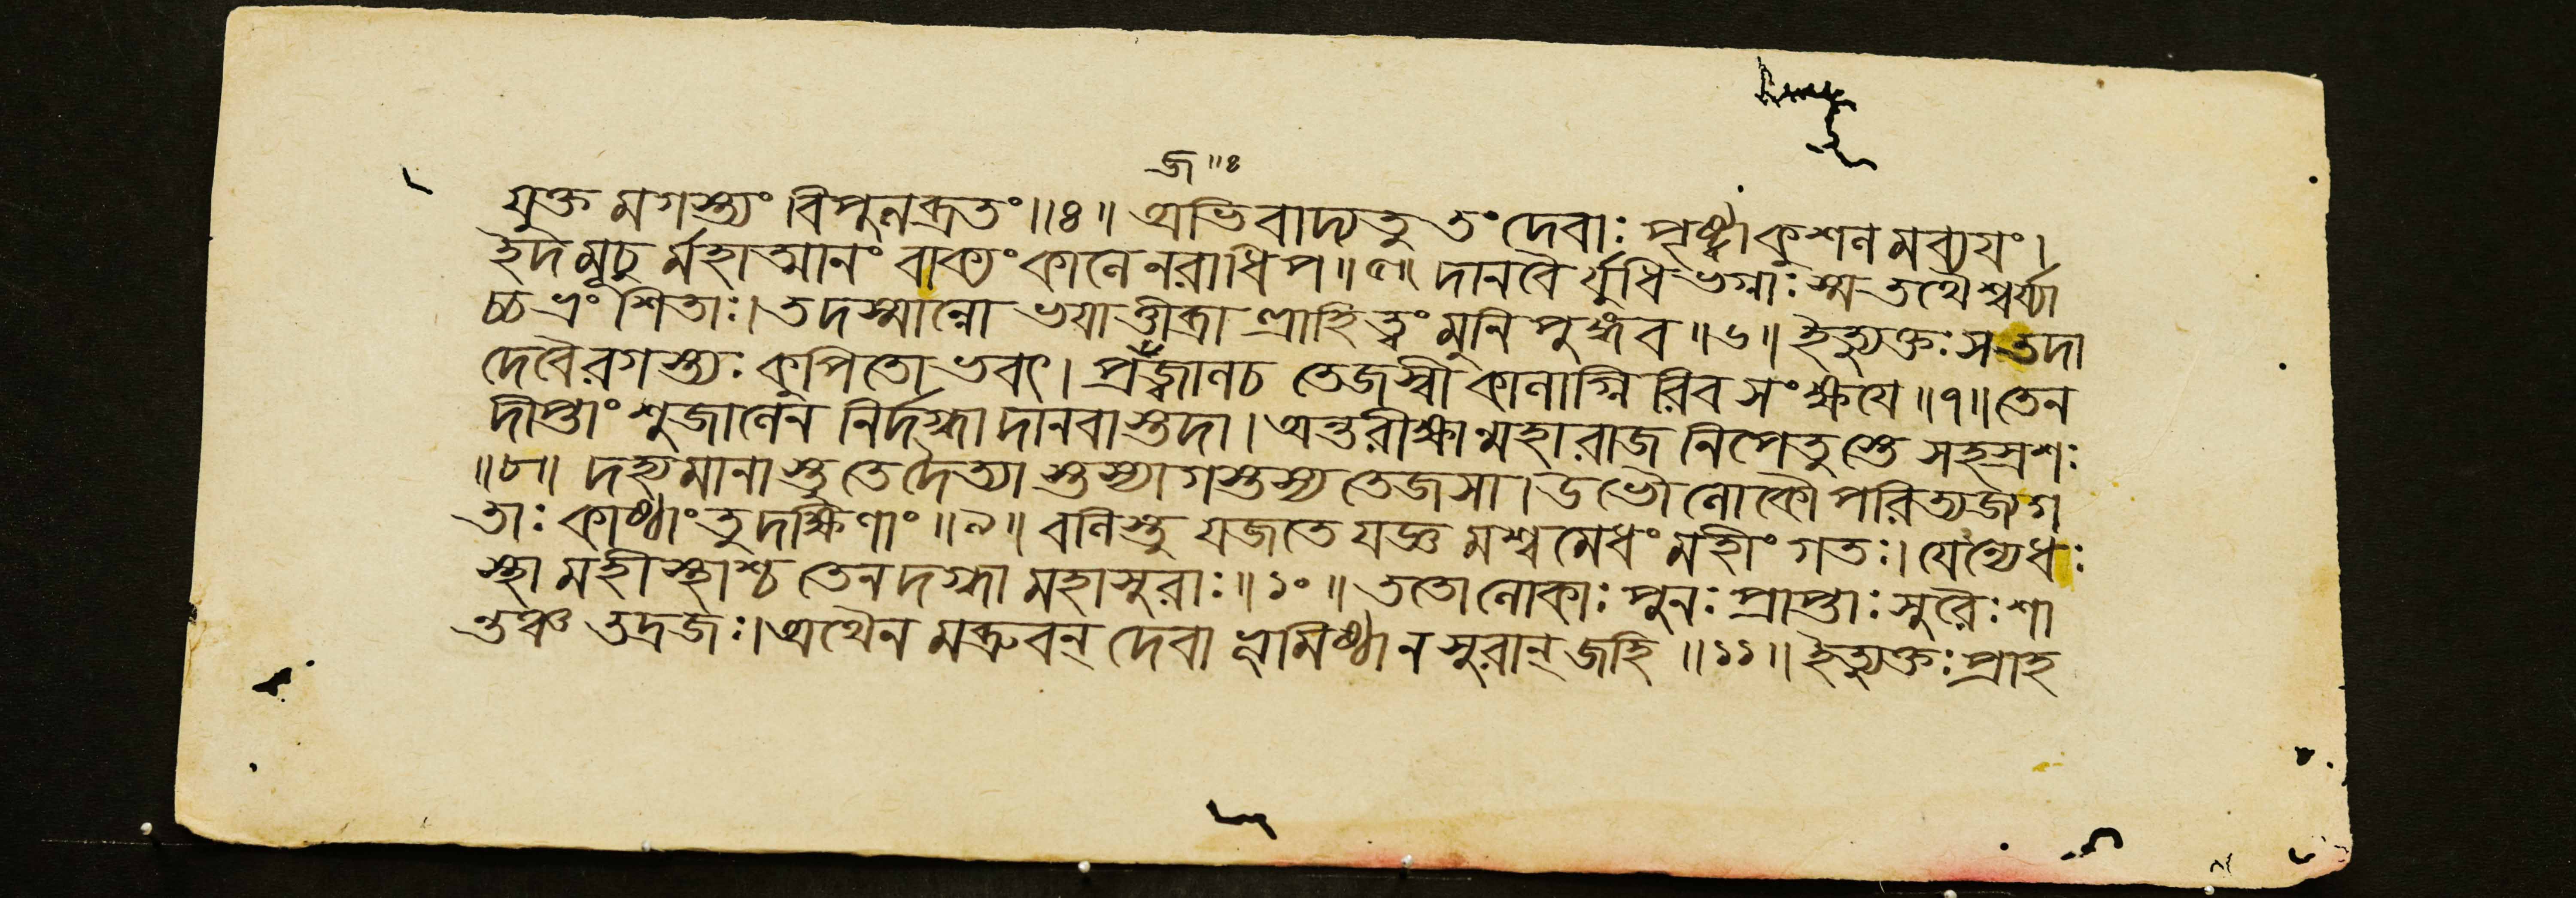 জ ॥৪
যুক্ত মগস্ত্যং বিপুলব্রতং ॥৪॥ অভিবাদ্য তু তং দেবাঃ পৃষ্ট্বা কুশলমব্যযং ।
ইদমূচু র্মহাত্মানং বাক্যং কালে নরাধিপ ॥৫॥ দানবৈ র্যুধি ভগ্নাঃ স্ম তথৈশ্বর্য্যা
চ্চ ভ্রংশিতাঃ । তদস্মান্নো ভযাত্তীব্রা ত্ত্রাহি ত্বং মুনিপুঙ্গব ॥৬॥ ইত্যুক্তঃ স তদা
দেবৈরগস্ত্যঃ কুপিতো ভবৎ । প্রজজ্বাল চ তেজস্বী কালাগ্নি রিব সংক্ষযে ॥৭॥ তেন
দীপ্তাংশুজালেন নির্দগ্ধা দানবাস্তদা । অন্তরীক্ষান্মহারাজ নিপেতুস্তে সহস্রশঃ
॥৮॥ দহ্যমানাস্তু তে দৈত্যা স্তস্যাগস্তস্য তেজসা । উভৌ লোকৌ পরিত্যজ্য গ
তাঃ কাষ্ঠাং তু দক্ষিণাং ॥৯॥ বলিস্তু যজতে যজ্ঞ মশ্বমেধং মহীং গতঃ । যেঽন্যেধঃ
স্থা মহীস্থাশ্চ তেন দগ্ধা মহাসুরাঃ ॥১০॥ ততো লোকাঃ পুনঃ প্রাপ্তাঃ সুরৈঃ শা
ন্তঞ্চ তদ্রজঃ । অথৈন মব্রুবন্ দেবা ভূমিষ্ঠানসুরান্ জহি ॥১১॥ ইত্যুক্তঃ প্রাহ